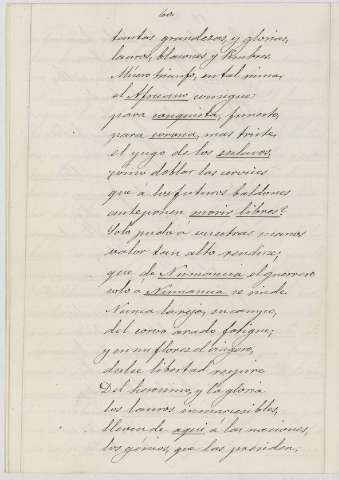 60.
tantas grandezas, y glorias,
lauros, blasones y timbres.
Mísero triunfo, en tal ruina,
el Africano consigue:
para conquista, funesto,
para corona, mas triste.
el yugo de los esclavos,
¿cómo doblar las cervices
que á los futuros baldones
anteponen morir libres?
Solo pudo á vuestras manos
valor tan alto rendirse;
que de Numancia el guerrero
solo a Numancia se rinde.
Nunca la reja, su campo,
del corvo arado fatigue;
y en sus flores el viagero,
dulce libertad respire
Del heroismo, y la gloria
los lauros inmarcesibles,
lleven de aquí á las naciones,
los génios, que las presiden;